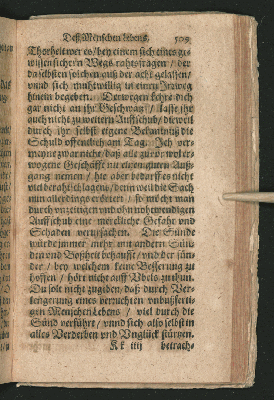 Deß Menschen lebens. 509
Thorheit wer es/ bey einem sich eines ge-
wissen sichern Wegs rahtsfragen / der
daselbsten solchen auß der acht gelassen/
vnd sich muthwillig in einen Irrweg
hinein begeben. Derwegen kehre dich
gar nicht an ihr Geschwätz / lasse ihr
auch nicht zu weitern Auffschub/ die weil
durch ihr selbst eigene Bekantnuß die
Schuld offentlich am Tag. Ich ver-
meyne zwar nicht/ daß alle zuvor wol er-
wogene Geschäfft ein guten Auß-
gang nemen / hie aber bedarff es nicht
viel berahtschlagens/ denn weil die Sach
nun allerdings erörtert / so möcht man
durch vnzeitigen vnd ohn nohtwendigen
Auffschub eine merckliche Gefahr vnd
Schaden verursachen. Die Sünde
würde immer mehr mit andern Sün-
den vnd Boßheit behaufft / vnd der sün-
der / bey welchem keine Besserung zu
hoffen / hört nicht auff Vbels zuthun.
Du solt nicht zugeben/ daß durch Ver-
lengerung eines veruchten vnbußferti-
gen Menschen Lebens / viel durch die
Sünd verführt / vnnd sich also selbst in
alles Verderben vnd Vnglück stürtzen.
Kk iiij betrach-